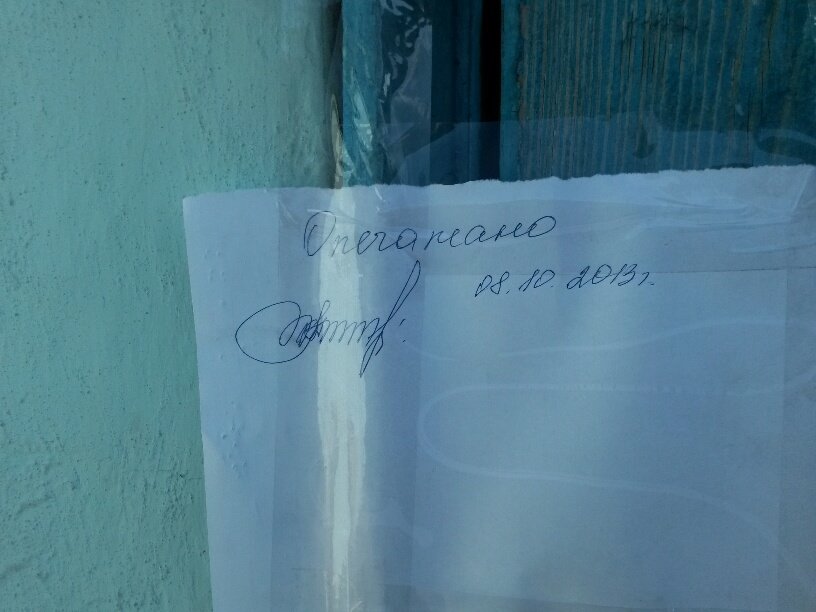 Опечатано
08.10.2013г.